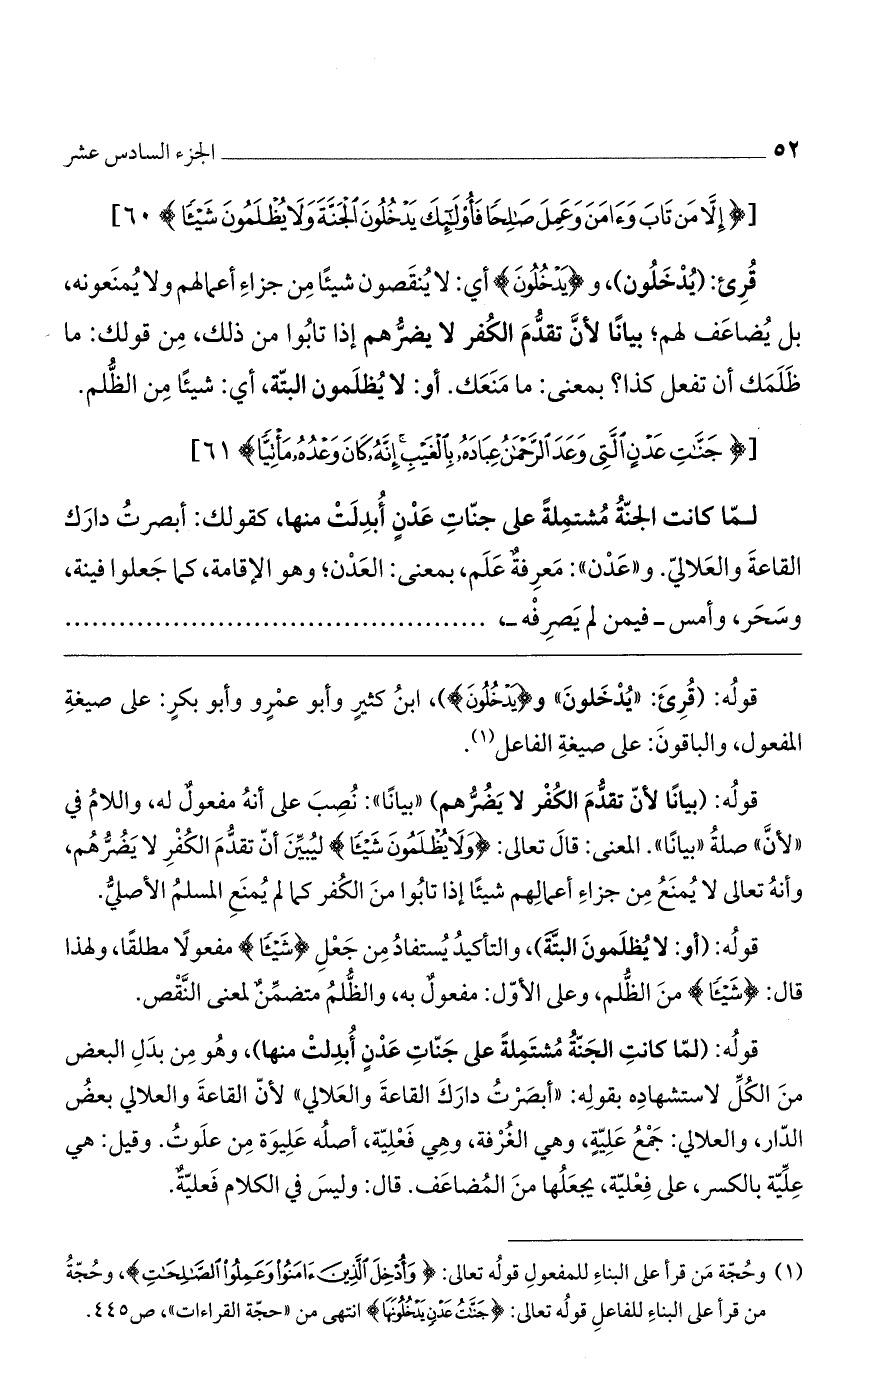 ٥٢ ـــــــــــــــــــــــــــــــــــــــ الجزء السادس عشر
[﴿إِلَّا مَن تَابَ وَءَامَنَ وَعَمِلَ صَٰلِحًا فَأُوْلَٰٓئِكَ يَدْخُلُونَ ٱلْجَنَّةَ وَلَا يُظْلَمُونَ شَيْـًٔا﴾ ٦٠]
قُرِئ: (يُدْخَلُون)، و﴿يَدْخُلُونَ﴾ أي: لا يُنقَصون شيئًا مِن جزاءِ أعمالهم ولا يُمنَعونه،
بل يُضاعَف لهم؛ بيانًا لأنَّ تقدُّمَ الكُفر لا يضرُّهم إذا تابُوا من ذلك، مِن قولك: ما
ظَلَمَك أن تفعل كذا؟ بمعنى: ما مَنَعَك. أو: لا يُظلَمون البتّة، أي: شيئًا مِن الظُّلم.
[﴿جَنَّٰتِ عَدْنٍ ٱلَّتِي وَعَدَ ٱلرَّحْمَٰنُ عِبَادَهُۥ بِٱلْغَيْبِ ۚ إِنَّهُۥ كَانَ وَعْدُهُۥ مَأْتِيًّا﴾ ٦١]
لـمّا كانت الجنّةُ مُشتمِلةً على جنّاتِ عَدْنٍ أُبدِلَتْ منها، كقولك: أبصرتُ دارَك
القاعةَ والعَلاليّ. و«عَدْن»: مَعرِفةٌ عَلَم، بمعنى: العَدْن؛ وهو الإقامة، كما جَعلوا فينة،
وسَحَر، وأمس ـ فيمن لم يَصرِفْه ـ، ...............................................
قولُه: (قُرِئَ: «يُدْخَلونَ» و﴿يَدْخُلُونَ﴾)، ابنُ كثيرٍ وأبو عمْرٍو وأبو بكرٍ: على صيغةِ
المفعول، والباقونَ: على صيغةِ الفاعل(١).
قولُه: (بيانًا لأنّ تقدُّمَ الكُفْر لا يَضُرُّهم) «بيانًا»: نُصِبَ على أنهُ مفعولٌ له، واللامُ في
«لأنَّ» صلةُ «بيانًا». المعنى: قالَ تعالى: ﴿وَلَا يُظْلَمُونَ شَيْـًٔا﴾ ليُبيِّنَ أنّ تقدُّمَ الكُفْرِ لا يَضُرُّهُم،
وأنهُ تعالى لا يُمنَعُ مِن جزاءِ أعمالِهم شيئًا إذا تابُوا منَ الكُفر كما لم يُمنَعِ المسلمُ الأصليُّ.
قولُه: (أو: لا يُظلَمونَ البتَّةَ)، والتأكيدُ يُستفادُ مِن جَعْلِ ﴿شَيْـًٔا﴾ مفعولًا مطلقًا، ولهذا
قال: ﴿شَيْـًٔا﴾ منَ الظُّلم، وعلى الأوّل: مفعولٌ به، والظُّلمُ متضمِّنٌ لمعنى النَّقْص.
قولُه: (لمّا كانتِ الجَنّةُ مُشتَمِلةً على جَنّاتِ عَدْنٍ أُبدِلتْ منها)، وهُو مِن بدَلِ البعض
منَ الكُلِّ لاستشهادِه بقولِه: «أبصَرْتُ دارَكَ القاعةَ والعَلالي» لأنّ القاعةَ والعلالي بعضُ
الدّار، والعلالي: جَمْعُ عَلِيّةٍ، وهي الغُرْفة، وهِي فَعْلِيّة، أصلُه عَلِيوَة مِن علَوتُ. وقيل: هي
عِلِّيّة بالكسر، على فِعْليّة، يجعَلُها منَ المُضاعَف. قال: وليسَ في الكلام فَعليّةٌ.
(١) وحُجّة مَن قرأ على البناءِ للمفعولِ قولُه تعالى: ﴿وَأُدْخِلَ ٱلَّذِينَ ءَامَنُواْ وَعَمِلُواْ ٱلصَّٰلِحَٰتِ﴾، وحُجّةُ
من قرأ على البناءِ للفاعلِ قولُه تعالى: ﴿جَنَّٰتُ عَدْنٍ يَدْخُلُونَهَا﴾ انتهى من «حجّة القراءات»، ص٤٤٥.